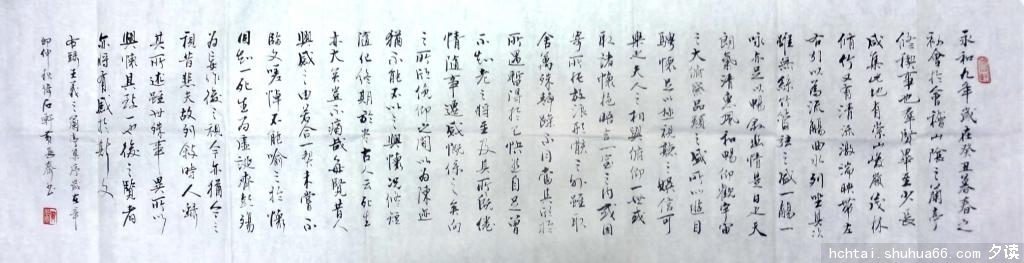 永和九年歲在癸丑暮春之
初會於會稽山陰之蘭亭
修稧事也群賢畢至少長
咸集此地有崇山峻嶺茂林
脩竹又有清流激湍映帶左
右引以為流觴曲水列坐其次
雖無絲竹管弦之盛一觴一
詠亦足以暢敘幽情是日也天
朗氣清惠風和暢仰觀宇宙
之大俯察品類之盛所以遊目
騁懷足以極視聽之娛信可
樂也夫人之相與俯仰一世或
取諸懷抱晤言一室之內或因
寄所托放浪形骸之外雖取
舍萬殊靜躁不同當其欣於
所遇暫得於己怏然自足曾
不知老之將至及其所之既倦
情隨事遷感慨係之矣向
之所欣俯仰之間以為陳迹
猶不能不以之興懷況修短
隨化終期於盡古人云死生
亦大矣豈不痛哉每覽昔人
興感之由若合一契未嘗不
臨文嗟悼不能喻之於懷
固知一死生為虛誕齊彭殤
為妄作後之視今亦猶今之
視昔悲夫故列敘時人錄
其所述雖世殊事異所以
興懷其致一也後之覽者
亦將有感於斯文
右錄王羲之蘭亭集序歲在辛
卯仲秋石軒書
hchtai.shuhua66.com 夕读